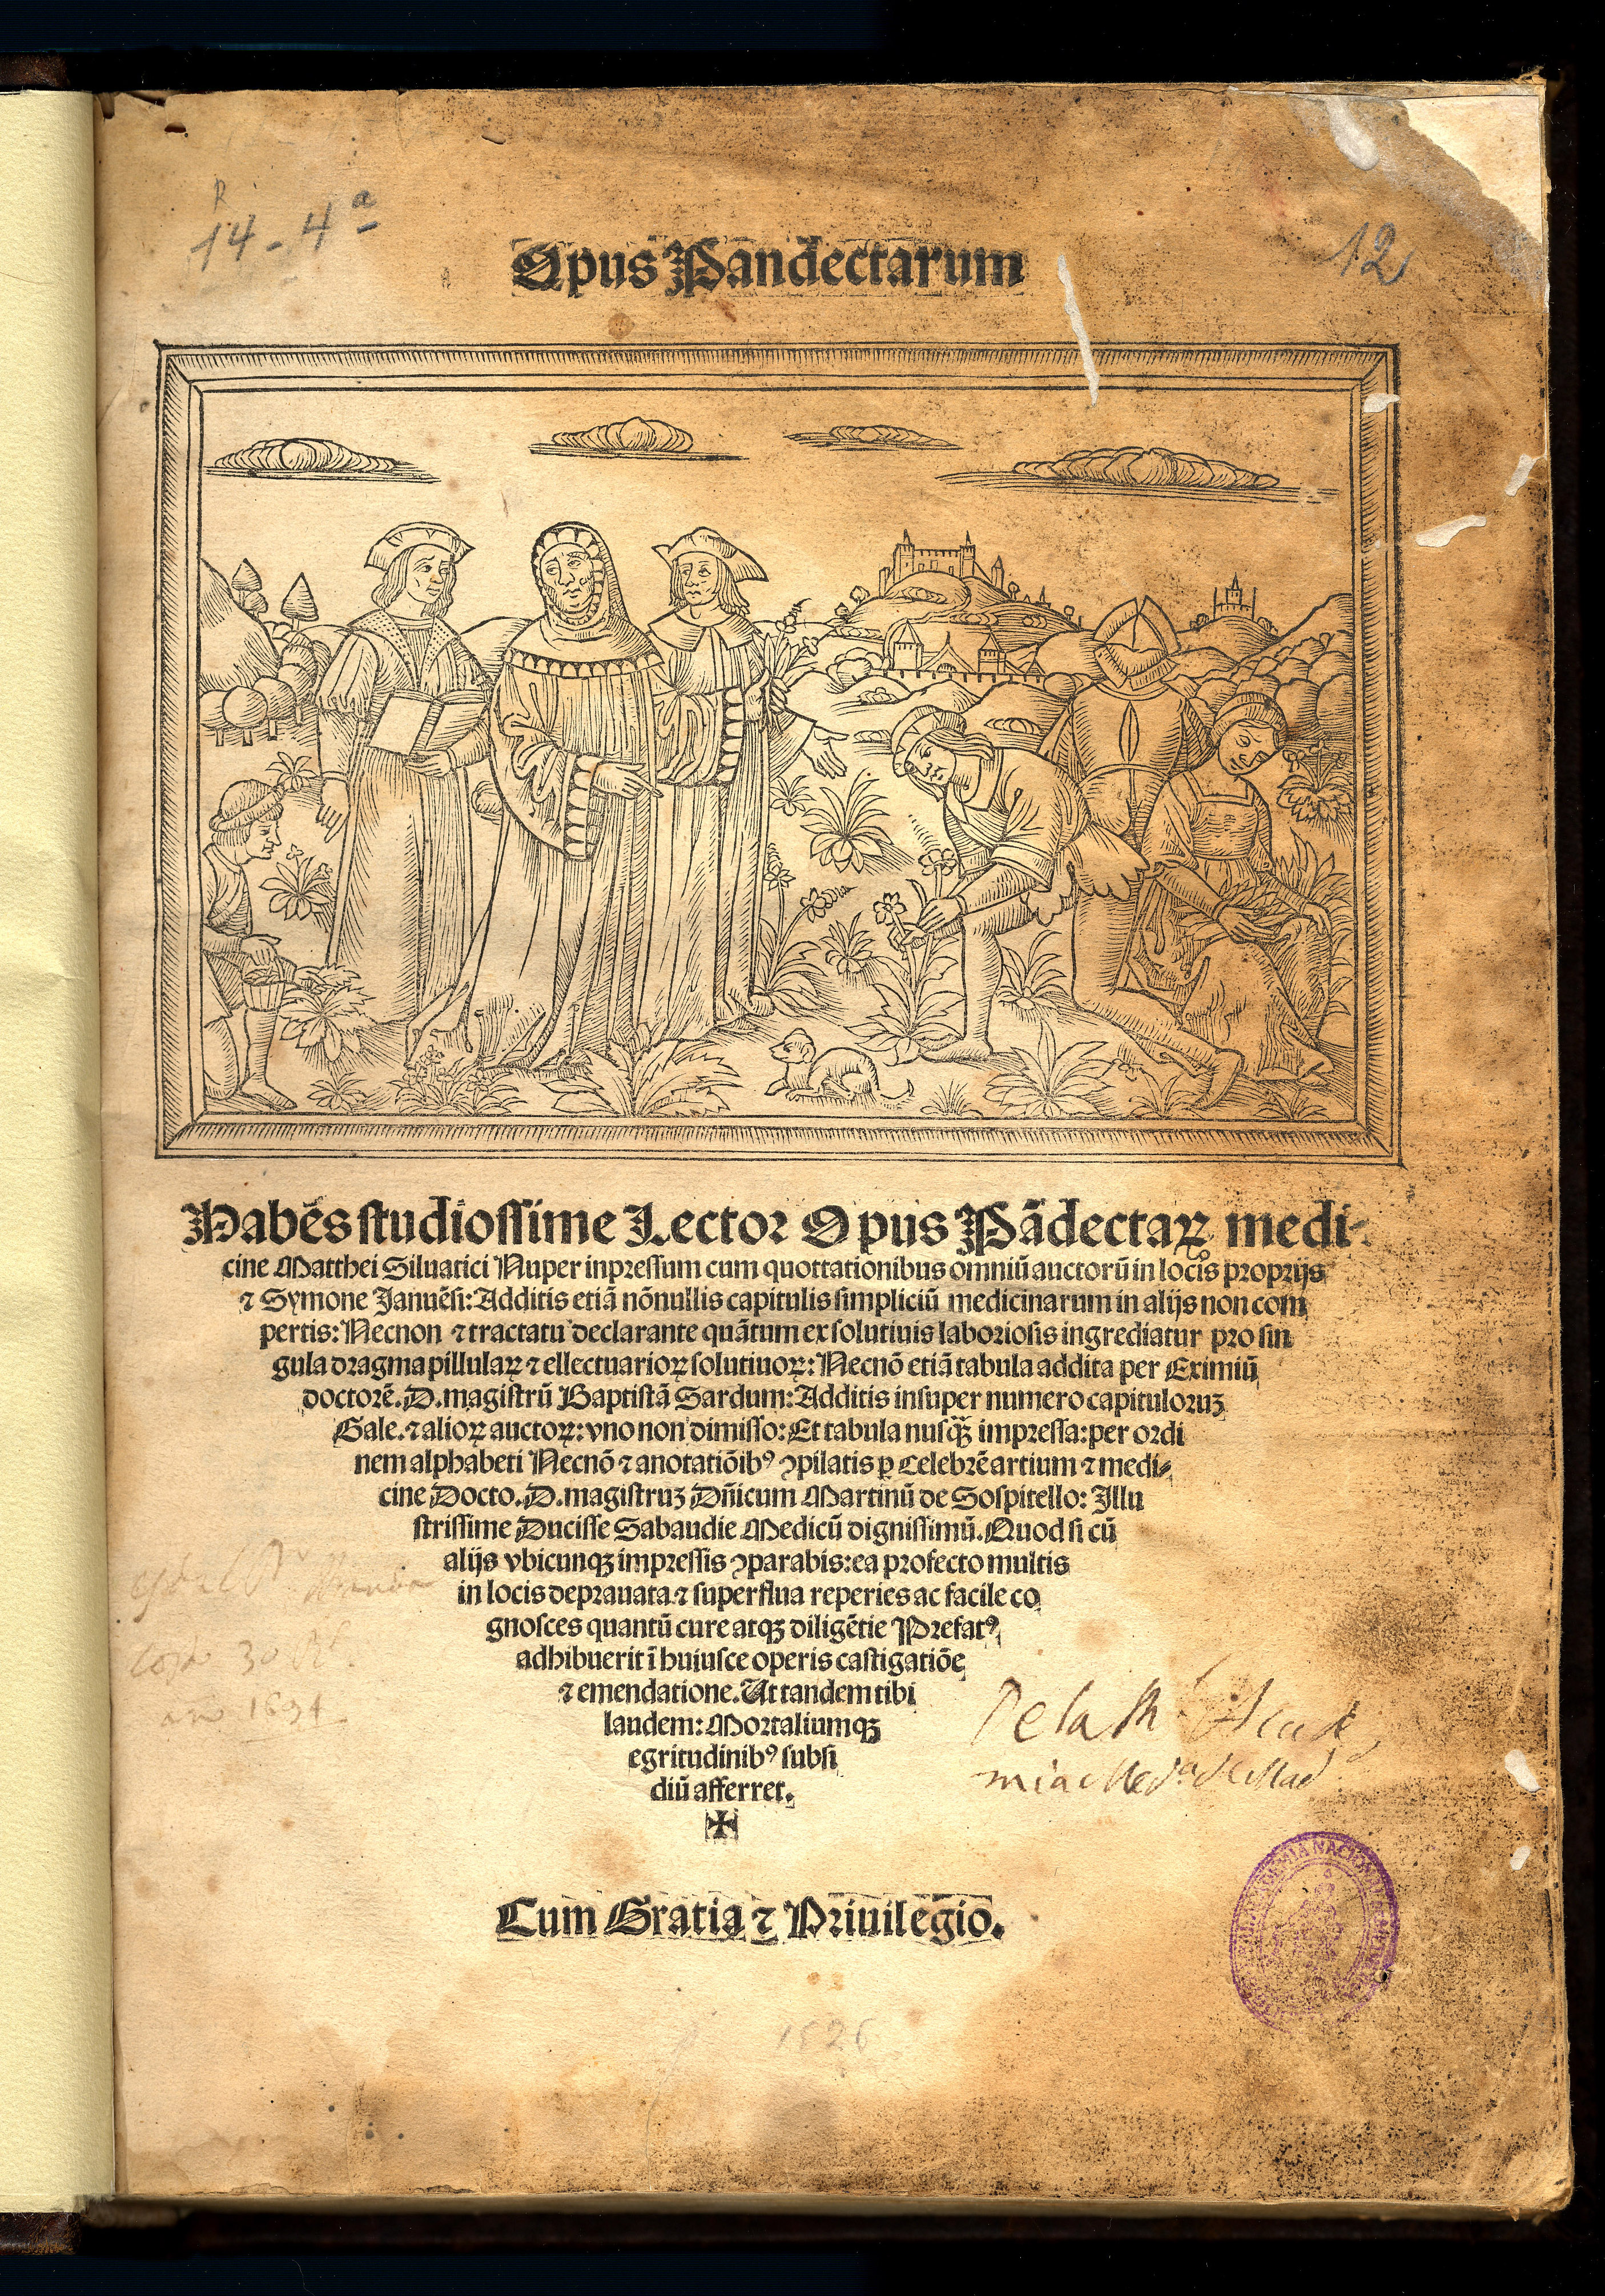 R
14-4ª
12
Opus Pandectarum
Habēs studiossime Lector Opus Pādectaꝝ medi-
cine Matthei Siluatici Nuper inpressum cum quottationibus omniū auctorū in locis proprijs
⁊ Symone Januēsi: Additis etiā nōnullis capitulis simpliciū medicinarum in alijs non com
pertis: Necnon ⁊ tractatu declarante quātum ex solutiuis laboriosis ingrediatur pro sin
gula dragma pillulaꝝ ⁊ ellectuarioꝝ solutiuoꝝ: Necnō etiā tabula addita per Eximiū
doctorē. D. magistrū Baptistā Sardum: Additis insuper numero capituloruꝫ
Gale. ⁊ alioꝝ auctoꝝ: vno non dimisso: Et tabula nusq̄ꝫ impressa: per ordi
nem alphabeti Necnō ⁊ anotatiōibꝰ ꝯpilatis ꝑ Celebrē artium ⁊ medi-
cine Docto. D. magistruꝫ Dn̄icum Martinū de Sospitello: Illu
strissime Ducisse Sabaudie Medicū dignissimū. Quod si cū
alijs vbicunqꝫ impressis ꝯparabis: ea profecto multis
in locis deprauata ⁊ superflua reperies ac facile co
gnosces quantū cure atqꝫ diligētie Prefatꝰ
adhibuerit ī huiusce operis castigatiōe
⁊ emendatione. Ut tandem tibi
laudem: Mortaliumqꝫ
egritudinibꝰ subsi
diū afferret.
✠
De la Rˡ Acade
mia Medᵃ de Mad
Cum Gratia ⁊ Priuilegio.
1526